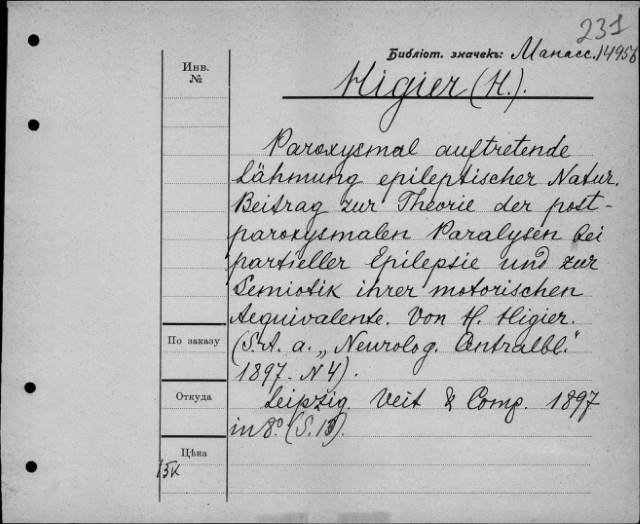 231
Библіот. значекъ: Манасс. 14956
Инв.
№
Higier (H.).
Paroxysmal auftretende
Lähmung epileptischer Natur.
Beitrag zur Theorie der post-
paroxysmalen Paralysen bei
partieller Epilepsie und zur
Semiotik ihrer motorischen
Aequivalente. Von H. Higier.
(S. A. a. „Neurolog. Centralbl."
1897. N 4).
По заказу
Leipzig. Veit & Comp. 1897
Откуда
in 8º. (S. ).
Цѣна
15к